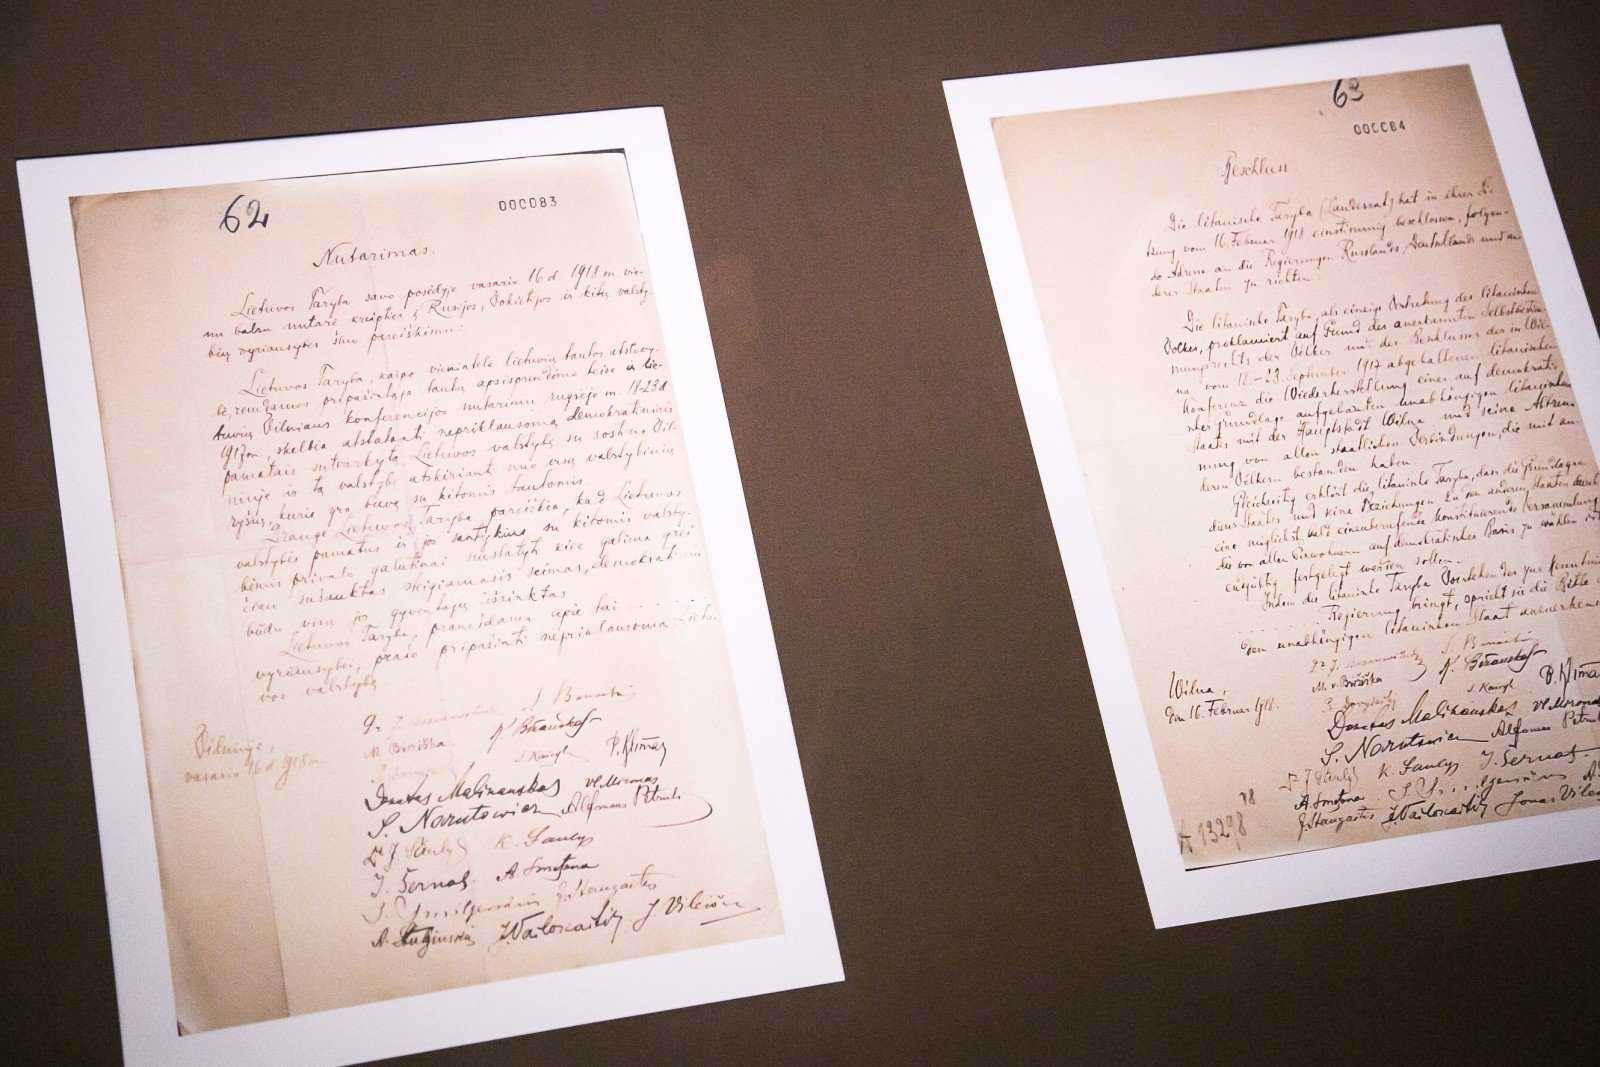 62
000083
Nutarimas.
Lietuvos Taryba savo posėdyje vasario 16 d. 1918 m. vie-
nu balsu nutarė kreiptis į Rusijos, Vokietijos ir kitų valsty-
bių vyriausybes šiuo pareiškimu:
Lietuvos Taryba, kaipo vienintelė lietuvių tautos atstovy-
bė, remdamos pripažintąja tautų apsisprendimo teise ir lie-
tuvių Vilniaus konferencijos nutarimu rugsėjo m. 18-23 d.
1917 m., skelbia atstatanti nepriklausomą demokratiniais
pamatais sutvarkytą Lietuvos valstybę su sostine Vil-
niuje ir tą valstybę atskirianti nuo visų valstybinių
ryšių, kurie yra buvę su kitomis tautomis.
Drauge Lietuvos Taryba pareiškia, kad Lietuvos
valstybės pamatus ir jos santykius su kitomis valsty-
bėmis privalo galutinai nustatyti kiek galima grei-
čiau sušauktas steigiamasis seimas, demokratiniu
būdu visų jos gyventojų išrinktas.
Lietuvos Taryba, pranešdama apie tai . . . . . .
vyriausybei, prašo pripažinti nepriklausomą Lietu-
vos valstybę
Vilniuje,
vasario 16 d. 1918 m.
Dr J Basanavičius S. Banaitis
M. Biržiška K. Bizauskas
P. Dovydaitis S Kairys P. Klimas
Donatas Malinauskas Vl Mironas
S. Narutowicz Alfonsas Petrulis
Dr J Šaulys K. Šaulys
J. Šernas. A Smetona
J. Smilgevičius J. Staugaitis
A. Stulginskis J. Vailokaitis J. Vileišis
63
000084
Beschluss.
Die litauische Taryba (Landesrat) hat in ihrer Sit-
zung vom 16. Februar 1918 einstimmig beschlossen, folgen-
de Adresse an die Regierungen Russlands, Deutschlands und an-
derer Staaten zu richten:
Die litauische Taryba, als einzige Vertretung des litauischen
Volkes, proklamiert auf Grund des anerkannten Selbstbestim-
mungsrechts der Völker und des Beschlusses der in Wil-
na vom 18.-23 September 1917 abgehaltenen litauischen
Konferenz die Wiederherstellung eines auf demokrati-
scher Grundlage aufgebauten unabhängigen litauischen
Staates mit der Hauptstadt Wilna und seine Abtren-
nung von allen staatlichen Verbindungen, die mit an-
deren Völkern bestanden haben.
Gleichzeitig erklärt die litauische Taryba, dass die Grundlagen
dieses Staates und seine Beziehungen zu den anderen Staaten durch
eine möglichst bald einzuberufende konstituierende Versammlung
die von allen Einwohnern auf demokratischer Basis zu wählen ist
endgültig festgelegt werden sollen.
Indem die litauische Taryba Vorstehendes zur Kenntnis
. . . . . . Regierung bringt, spricht sie die Bitte
den unabhängigen litauischen Staat anzuerkennen
Wilna,
den 16. Februar 1918.
Dr J. Basanavičius S Banaitis
M. v. Biržiška K. Bizauskas
P. Dovydaitis S Kairys P. Klimas
Donatas Malinauskas Vl Mironas
S. Narutowicz Alfonsas Petrulis
Dr J Šaulys K. Šaulys J. Šernas.
A. Smetona J Smilgevičius
J. Staugaitis J. Vailokaitis Jonas Vileišis
A 13298